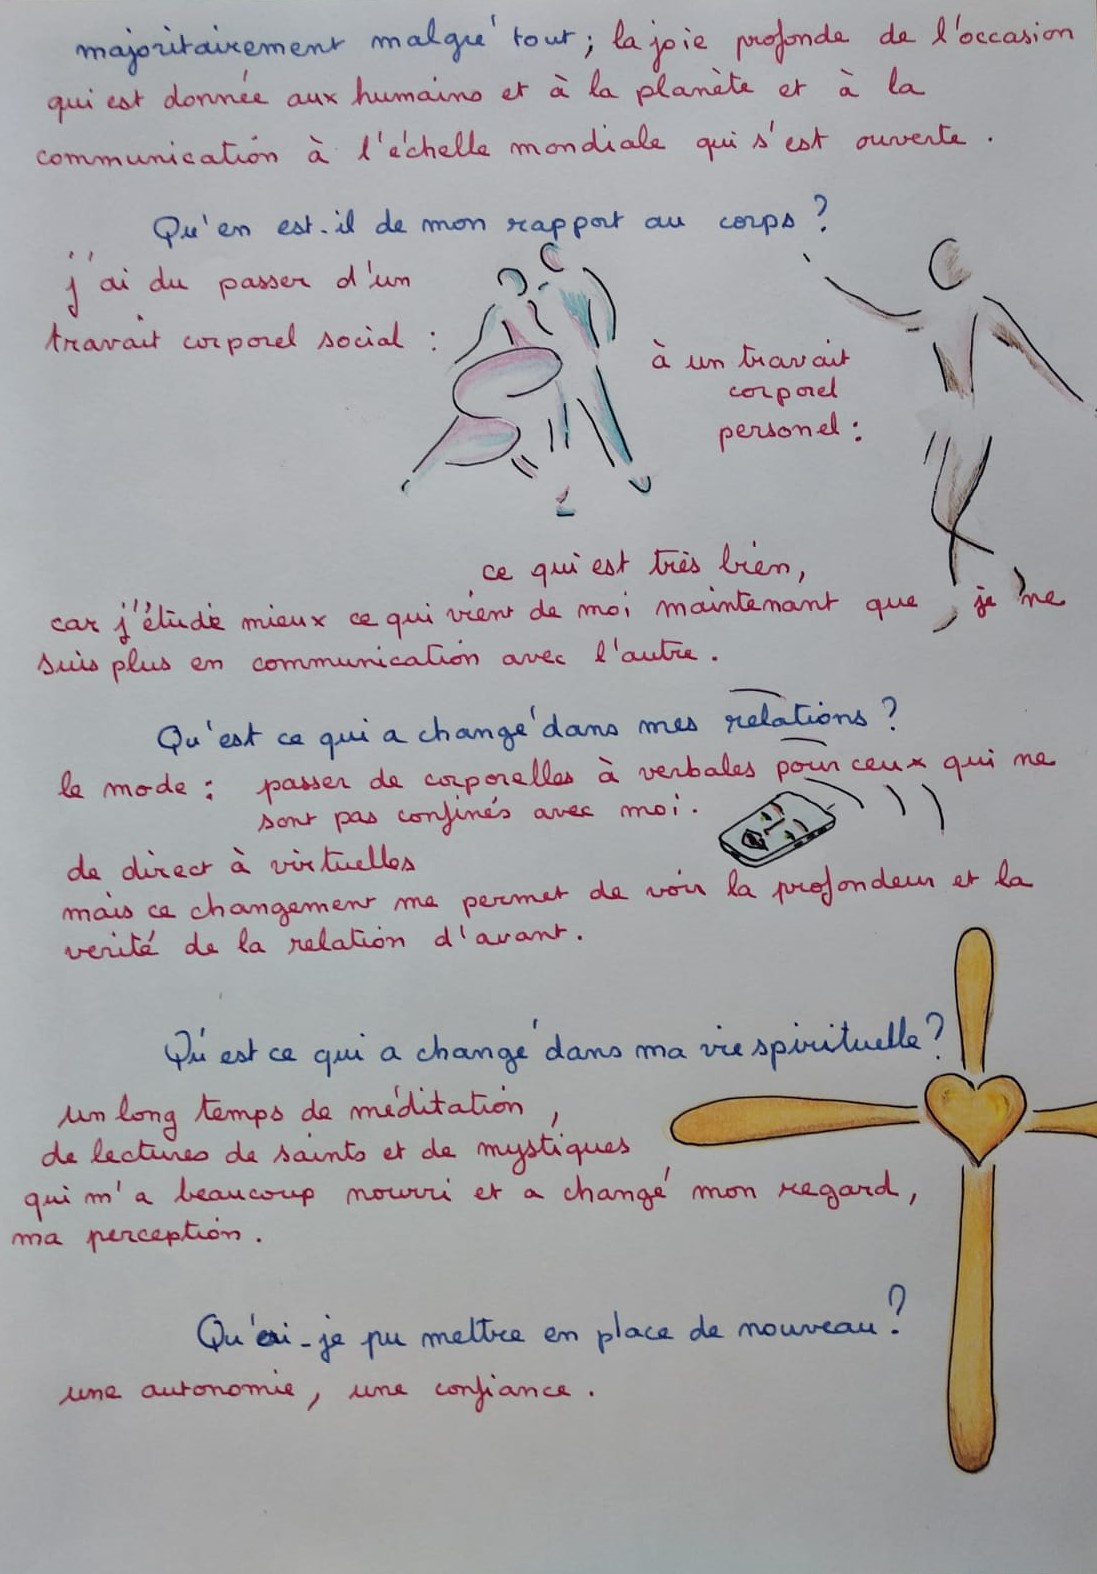 majoritairement malgré tout ; la joie profonde de l'occasion
qui est donnée aux humains et à la planète et à la
communication à l'échelle mondiale qui s'est ouverte .
Qu'en est-il de mon rapport au corps ?
j'ai du passer d'un
travait corporel social :
à un travait
corporel
personel :
ce qui est très bien,
car j'étudie mieux ce qui vient de moi maintenant que je ne
suis plus en communication avec l'autre .
Qu'est ce qui a changé dans mes relations ?
le mode : passer de corporelles à verbales pour ceux qui ne
sont pas confinés avec moi .
de direct à virtuelles
mais ce changement me permet de voir la profondeur et la
verité de la relation d'avant .
Qu'est ce qui a changé dans ma vie spirituelle ?
un long temps de méditation ,
de lectures de saints et de mystiques
qui m'a beaucoup nourri et a changé mon regard,
ma perception .
Qu'ai-je pu mettre en place de nouveau ?
une autonomie, une confiance .